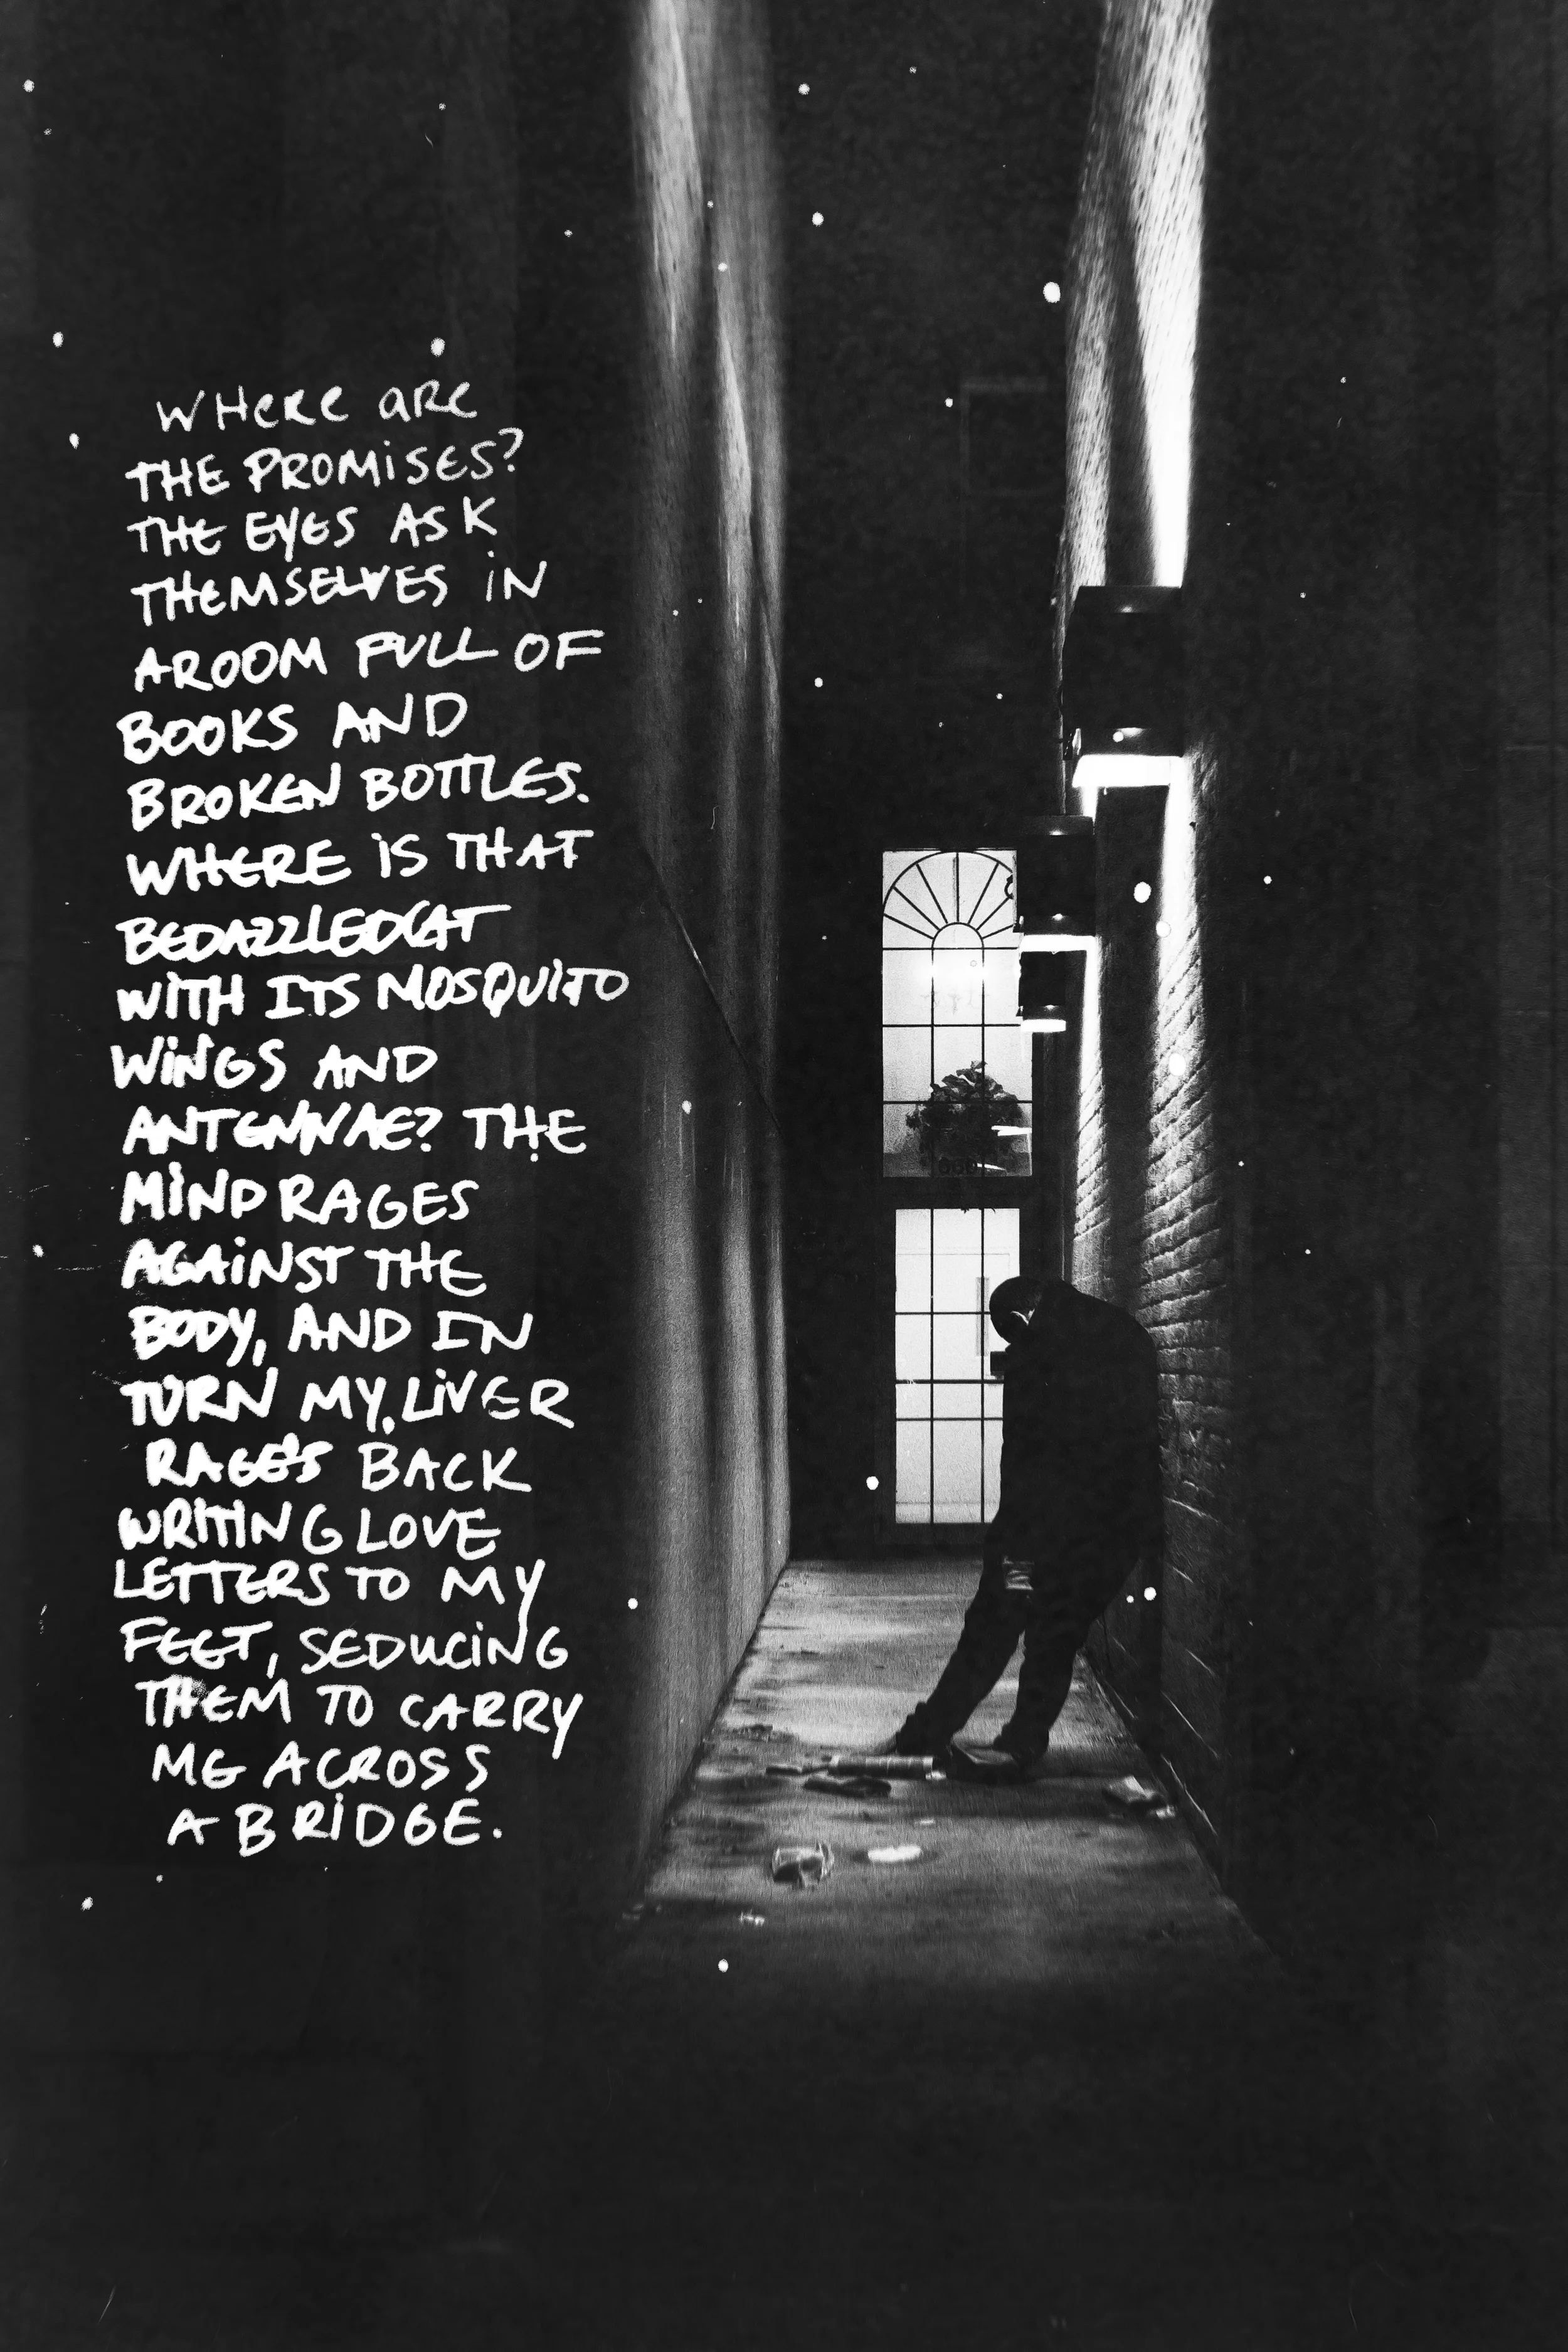 WHERE ARE
THE PROMISES?
THE EYES ASK
THEMSELVES IN
A ROOM FULL OF
BOOKS AND
BROKEN BOTTLES.
WHERE IS THAT
BEDAZZLED CAT
WITH ITS MOSQUITO
WINGS AND
ANTENNAE? THE
MIND RAGES
AGAINST THE
BODY, AND IN
TURN MY LIVER
RAGES BACK
WRITING LOVE
LETTERS TO MY
FEET, SEDUCING
THEM TO CARRY
ME ACROSS
A BRIDGE.